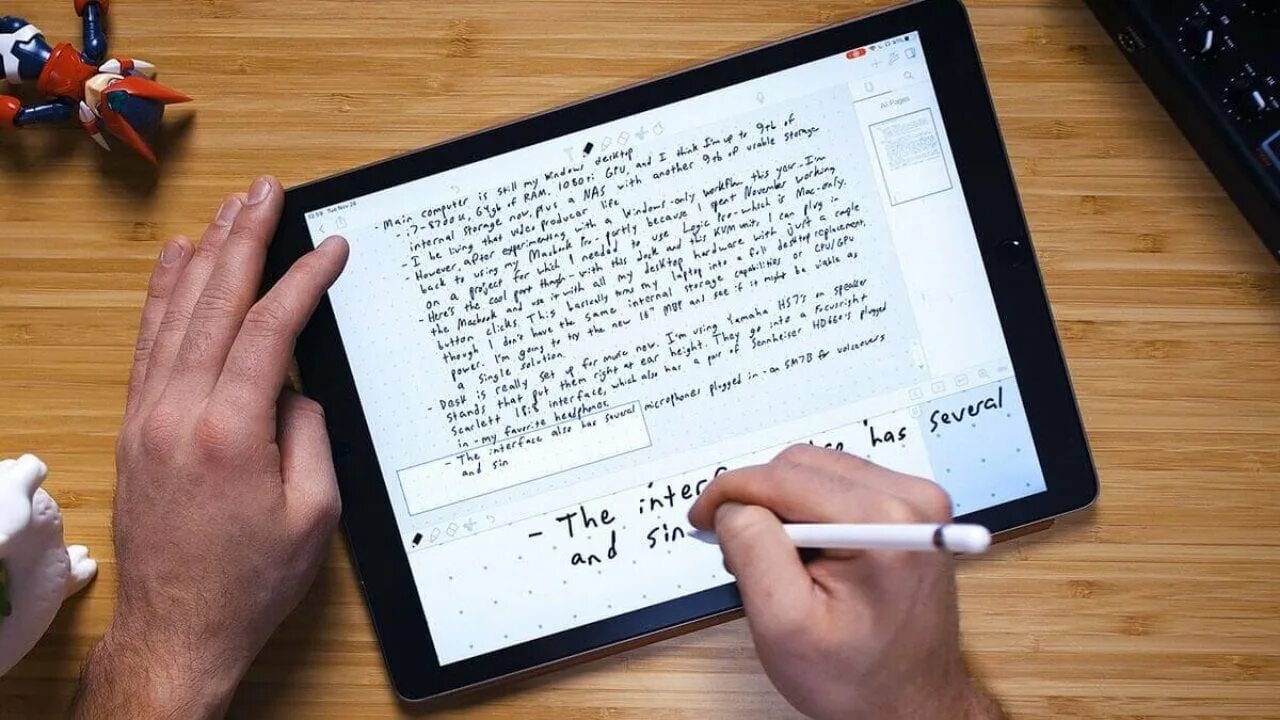 12:59 Tue Nov 26
All Pages
- Main computer is still my Windows desktop
i7-8700K, 64gb of RAM, 1080ti GPU, and I think I'm up to 9tb of
internal storage now, plus a NAS with another 9tb of usable storage
- I be living that video producer life
However, after experimenting with a Windows-only workflow this year I'm
back to using my Macbook Pro - partly because I spent November working
on a project for which I needed to use Logic Pro - which is Mac-only.
- Here's the cool part though - with this dock and this KVM unit, I can plug in
the Macbook and use it with all my desktop hardware with just a couple
button clicks. This basically turns my laptop into a full desktop replacement,
though I don't have the same internal storage capabilities or CPU/GPU
power. I'm going to try the new 16" MBP and see if it might be viable as
a single solution.
- Desk is really set up for music now. I'm using Yamaha HS7's on speaker
stands that put them right at ear height. They go into a Focusright
Scarlett 18i8 interface, which also has a pair of Sennheiser HD660's plugged
in - my favorite headphones.
- The interface also has several microphones plugged in - an SM7B for voiceovers
and sin
- The inter has several
and sin